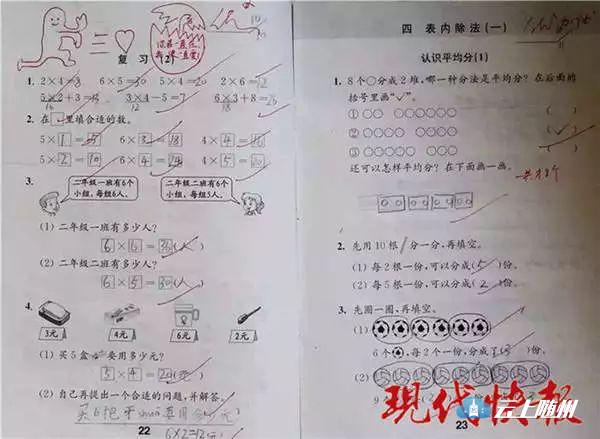 复 习 (2)
1. 2×4=8 6×5=30 5×4=20 2×6=12
5×2+3=13 3×4-5=7 6×3+8=26
10 12 18
2. 在□里填合适的数。
5×1=5 6×3=18 4×4=16
5×2=10 6×4=24 4×5=20
3.
二年级一班有6个小组,每组6人。
二年级二班有6个小组,每组5人。
(1) 二年级一班有多少人?
6×6=36(人)
(2) 二年级二班有多少人?
6×5=30(人)
4.
3元 4元 6元 2元
(1) 买5盒 要用多少元?
5×4=20(元)
(2) 自己再提出一个合适的问题,并解答。
买6把牙
6×2=12
22
四 表内除法(一)
认识平均分(1)
1. 8个○分成2堆,哪一种分法是平均分?在后面的
括号里画“✓”。
① ○○ ○○○○○○ ( )
② ○○○○ ○○○○ (✓)
③ ○○○ ○○○○○ ( )
还可以怎样平均分?在下面画一画。
共8个
2. 先用10根 分一分,再填空。
(1) 每2根一份,可以分成(5)份。
(2) 每5根一份,可以分成(2)份。
3. 先圈一圈,再填空。
(1)
6个 ,每2个一份,分成了(3)份。
(2)
9
现代快报
云上随州
23